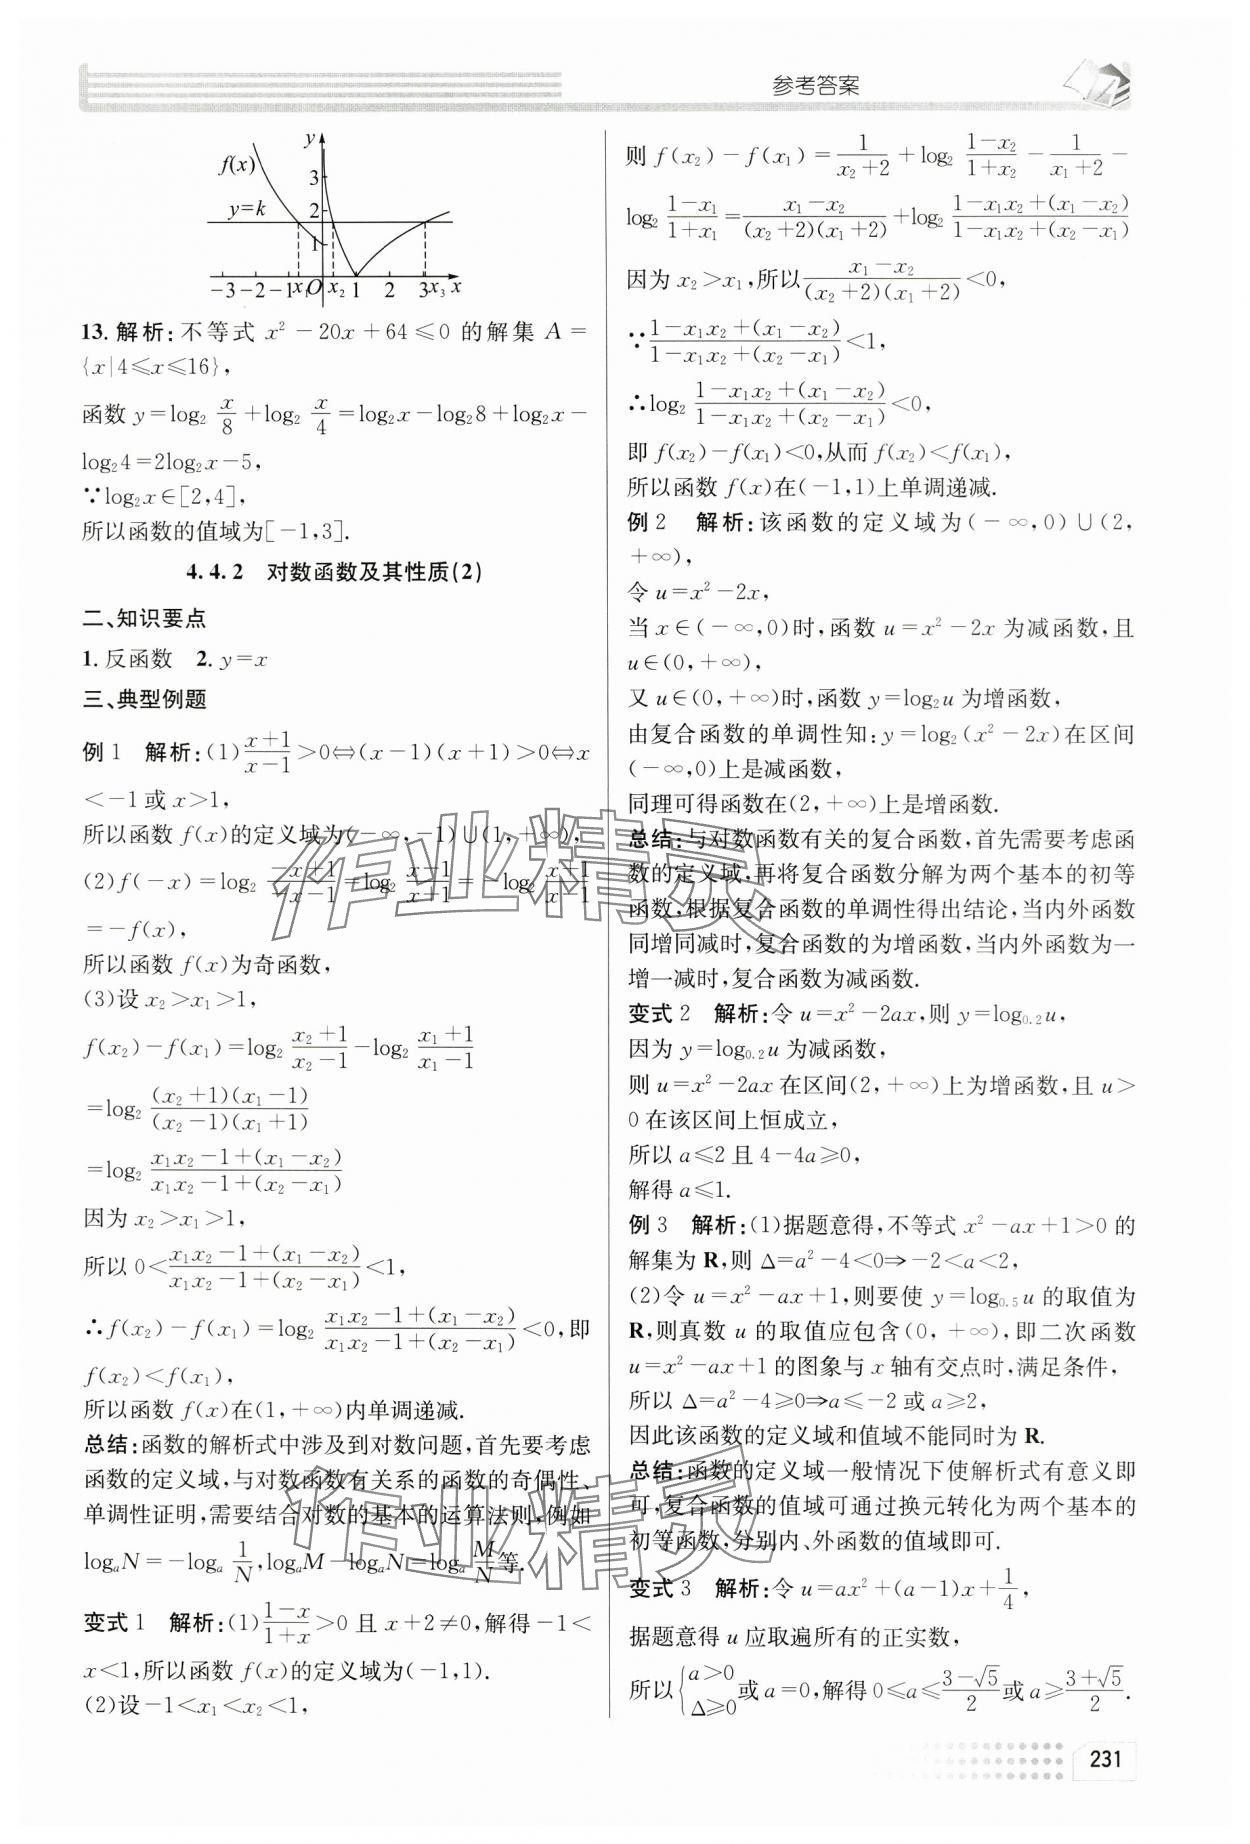 参考答案
y
f(x)
3
y=k
2
1
-3 -2 -1 x₁ O x₂ 1 2 3 x₃ x
13. 解析:不等式 x²-20x+64≤0 的解集 A=
{x|4≤x≤16},
函数 y=log₂ x/8 +log₂ x/4 =log₂x-log₂8+log₂x-
log₂4=2log₂x-5,
∵log₂x∈[2,4],
所以函数的值域为[-1,3].
4.4.2 对数函数及其性质(2)
二、知识要点
1. 反函数 2. y=x
三、典型例题
例 1 解析:(1)(x+1)/(x-1)>0⇔(x-1)(x+1)>0⇔x
<-1或 x>1,
所以函数 f(x)的定义域为(-∞,-1)∪(1,+∞),
(2)f(-x)=log₂ (-x+1)/(-x-1)=log₂ (x-1)/(x+1)=-log₂ (x+1)/(x-1)
=-f(x),
所以函数 f(x)为奇函数,
(3)设 x₂>x₁>1,
f(x₂)-f(x₁)=log₂ (x₂+1)/(x₂-1)-log₂ (x₁+1)/(x₁-1)
=log₂ (x₂+1)(x₁-1)/(x₂-1)(x₁+1)
=log₂ (x₁x₂-1+(x₁-x₂))/(x₁x₂-1+(x₂-x₁))
因为 x₂>x₁>1,
所以 0<(x₁x₂-1+(x₁-x₂))/(x₁x₂-1+(x₂-x₁))<1,
∴f(x₂)-f(x₁)=log₂ (x₁x₂-1+(x₁-x₂))/(x₁x₂-1+(x₂-x₁))<0,即
f(x₂)<f(x₁),
所以函数 f(x)在(1,+∞)内单调递减.
总结:函数的解析式中涉及到对数问题,首先要考虑
函数的定义域,与对数函数有关系的函数的奇偶性、
单调性证明,需要结合对数的基本的运算法则,例如
logₐN=-logₐ 1/N,logₐM-logₐN=logₐ M/N等.
变式 1 解析:(1)(1-x)/(1+x)>0 且 x+2≠0,解得-1<
x<1,所以函数 f(x)的定义域为(-1,1).
(2)设-1<x₁<x₂<1,
则 f(x₂)-f(x₁)=1/(x₂+2)+log₂ (1-x₂)/(1+x₂)-1/(x₁+2)-
log₂ (1-x₁)/(1+x₁)=(x₁-x₂)/(x₂+2)(x₁+2)+log₂ (1-x₁x₂+(x₁-x₂))/(1-x₁x₂+(x₂-x₁))
因为 x₂>x₁,所以(x₁-x₂)/(x₂+2)(x₁+2)<0,
∵(1-x₁x₂+(x₁-x₂))/(1-x₁x₂+(x₂-x₁))<1,
∴log₂ (1-x₁x₂+(x₁-x₂))/(1-x₁x₂+(x₂-x₁))<0,
即 f(x₂)-f(x₁)<0,从而 f(x₂)<f(x₁),
所以函数 f(x)在(-1,1)上单调递减.
例 2 解析:该函数的定义域为(-∞,0)∪(2,
+∞),
令 u=x²-2x,
当 x∈(-∞,0)时,函数 u=x²-2x 为减函数,且
u∈(0,+∞),
又 u∈(0,+∞)时,函数 y=log₂u 为增函数,
由复合函数的单调性知:y=log₂(x²-2x)在区间
(-∞,0)上是减函数,
同理可得函数在(2,+∞)上是增函数.
总结:与对数函数有关的复合函数,首先需要考虑函
数的定义域,再将复合函数分解为两个基本的初等
函数,根据复合函数的单调性得出结论,当内外函数
同增同减时,复合函数的为增函数,当内外函数为一
增一减时,复合函数为减函数.
变式 2 解析:令 u=x²-2ax,则 y=log₀.₂u,
因为 y=log₀.₂u 为减函数,
则 u=x²-2ax 在区间(2,+∞)上为增函数,且 u>
0 在该区间上恒成立,
所以 a≤2 且 4-4a≥0,
解得 a≤1.
例 3 解析:(1)据题意得,不等式 x²-ax+1>0 的
解集为 R,则 Δ=a²-4<0⇒-2<a<2,
(2)令 u=x²-ax+1,则要使 y=log₀.₅u 的取值为
R,则真数 u 的取值应包含(0,+∞),即二次函数
u=x²-ax+1 的图象与 x 轴有交点时,满足条件,
所以 Δ=a²-4≥0⇒a≤-2 或 a≥2,
因此该函数的定义域和值域不能同时为 R.
总结:函数的定义域一般情况下使解析式有意义即
可,复合函数的值域可通过换元转化为两个基本的
初等函数,分别内、外函数的值域即可.
变式 3 解析:令 u=ax²+(a-1)x+1/4,
据题意得 u 应取遍所有的正实数,
所以{a>0 Δ≥0 或 a=0,解得 0≤a≤(3-√5)/2 或 a≥(3+√5)/2.
231
作业精灵
作业精灵